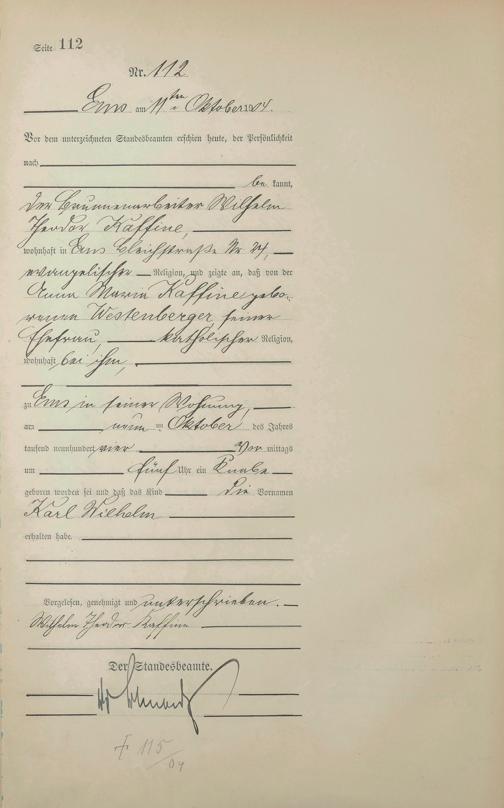 Seite 112
Nr. 112
Ems am 11ten Oktober 1904.
Vor dem unterzeichneten Standesbeamten erschien heute, der Persönlichkeit
nach
be kannt,
der Brunnenarbeiter Wilhelm
Theodor Kaffine,
wohnhaft in Ems Bleichstraße Nr 24,
evangelischer Religion, und zeigte an, daß von der
Anna Maria Kaffine gebo-
renen Westenberger, seiner
Ehefrau, katholischer Religion,
wohnhaft bei ihm,
zu Ems in seiner Wohnung,
am neun ten Oktober des Jahres
tausend neunhundert vier Vor mittags
um fünf Uhr ein Knabe
geboren worden sei und daß das Kind die Vornamen
Karl Wilhelm
erhalten habe.
Vorgelesen, genehmigt und unterschrieben.
Wilhelm Theodor Kaffine
Der Standesbeamte.
115/04